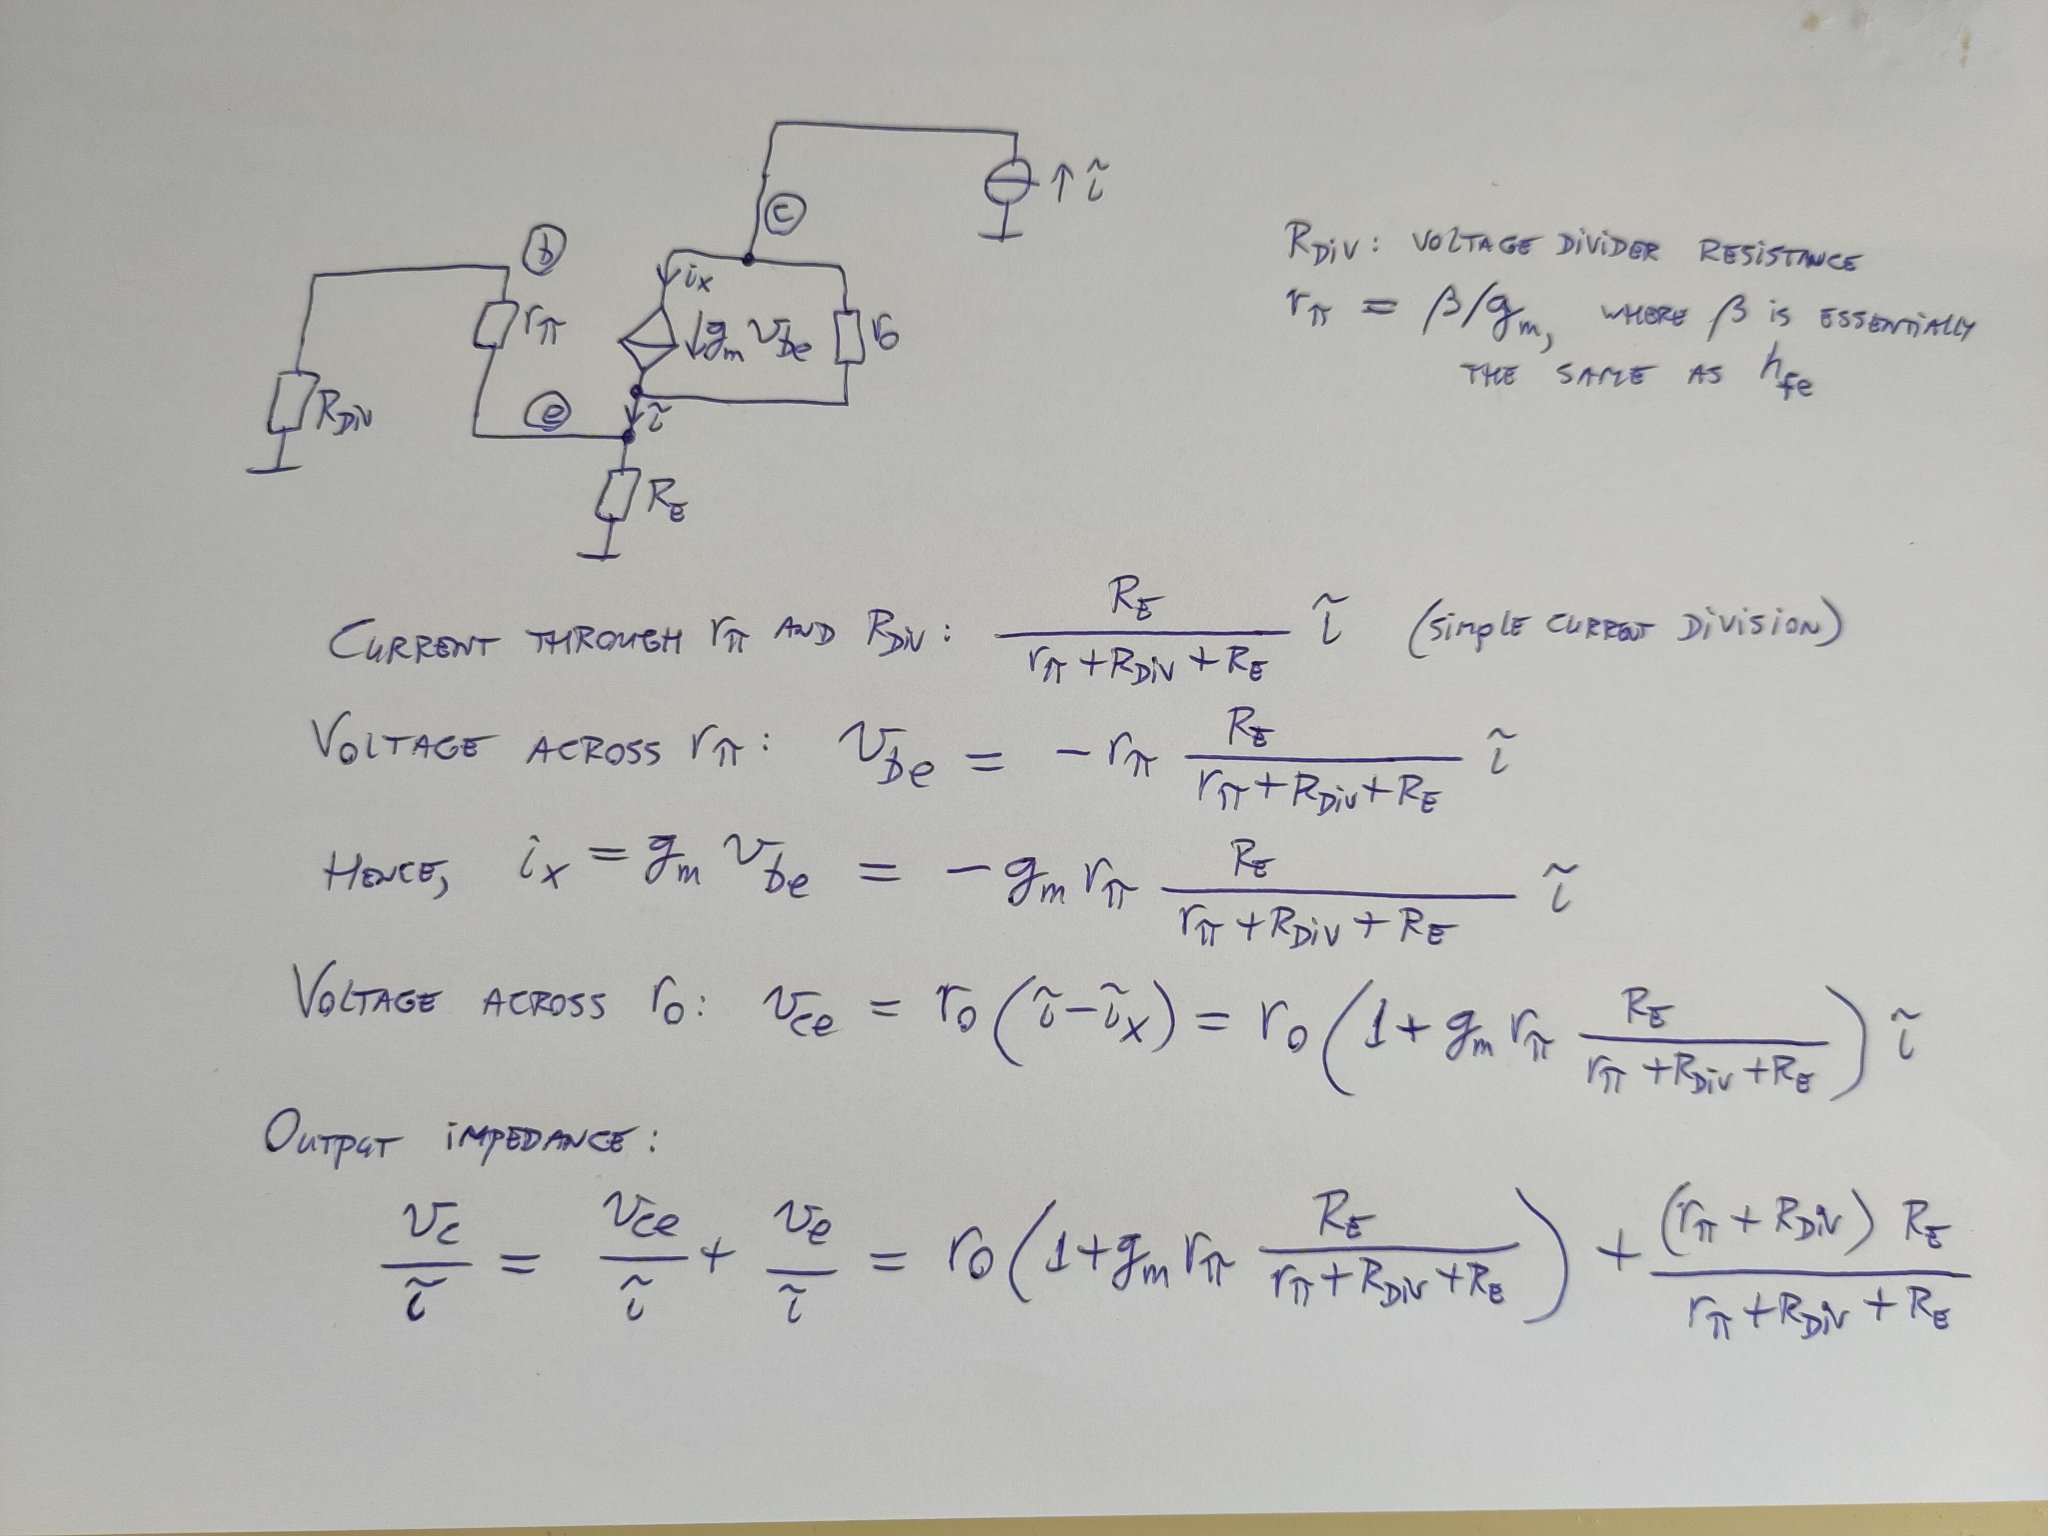 ⓒ ↑ ĩ
ⓑ
i_x
r_π
↓ g_m v_be
r_o
R_DiV
ⓔ
ĩ
R_E
R_DiV: VOLTAGE DIVIDER RESISTANCE
r_π = β/g_m, WHERE β is ESSENTIALLY
THE SAME AS h_fe
CURRENT THROUGH r_π AND R_DiV: R_E / (r_π + R_DiV + R_E) ĩ (SIMPLE CURRENT DIVISION)
VOLTAGE ACROSS r_π: v_be = - r_π R_E / (r_π + R_DiV + R_E) ĩ
HENCE, i_x = g_m v_be = - g_m r_π R_E / (r_π + R_DiV + R_E) ĩ
VOLTAGE ACROSS r_o: v_ce = r_o (ĩ - ĩ_x) = r_o (1 + g_m r_π R_E / (r_π + R_DiV + R_E)) ĩ
OUTPUT IMPEDANCE:
v_c / ĩ = v_ce / ĩ + v_e / ĩ = r_o (1 + g_m r_π R_E / (r_π + R_DiV + R_E)) + (r_π + R_DiV) R_E / (r_π + R_DiV + R_E)